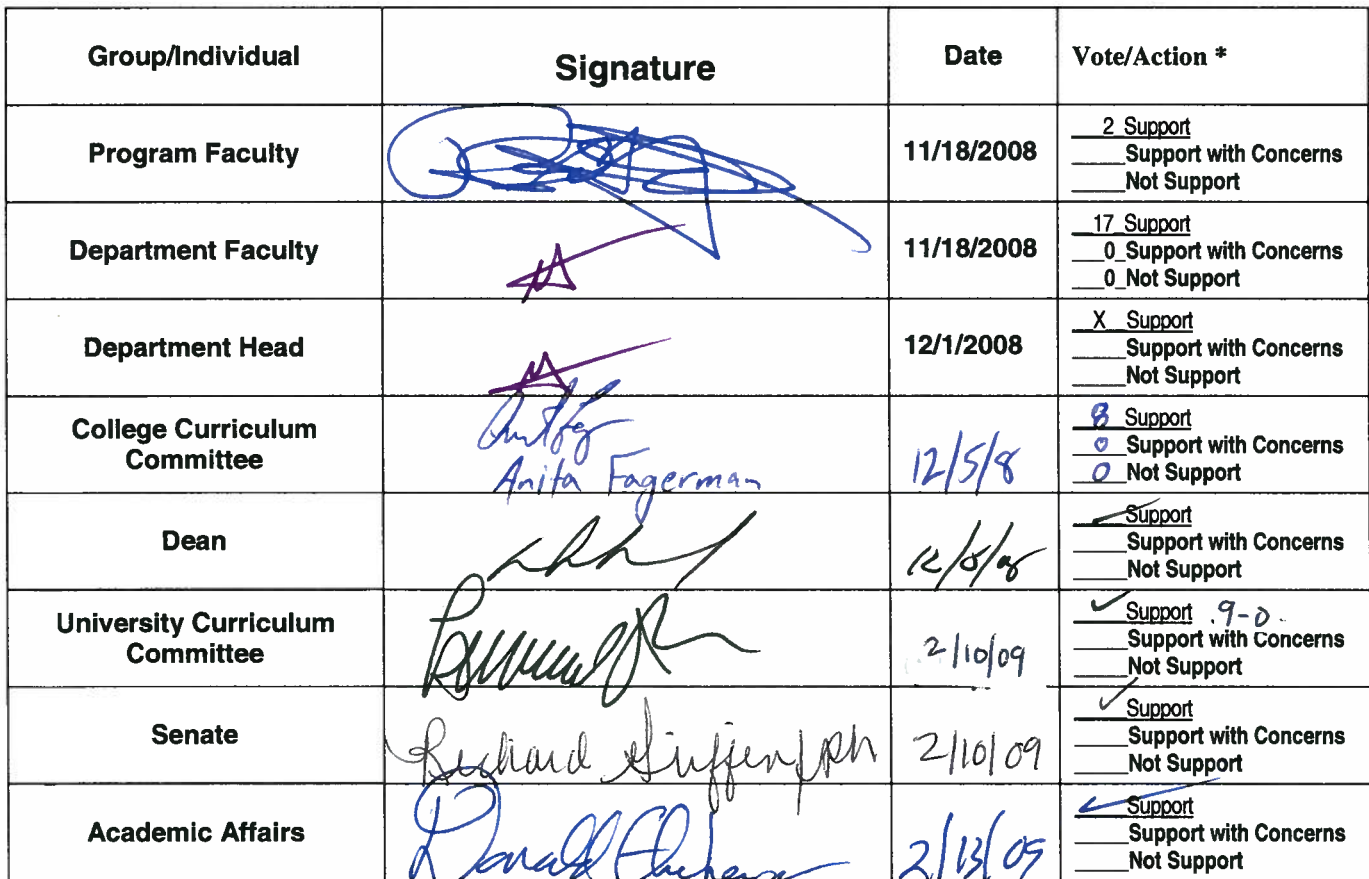 Group/Individual
Signature
Date
Vote/Action *
Program Faculty
11/18/2008
2 Support
Support with Concerns
Not Support
Department Faculty
11/18/2008
17 Support
0 Support with Concerns
0 Not Support
Department Head
12/1/2008
X Support
Support with Concerns
Not Support
College Curriculum
Committee
Anita Fagerman
12/5/8
8 Support
0 Support with Concerns
0 Not Support
Dean
12/5/08
✓ Support
Support with Concerns
Not Support
University Curriculum
Committee
2/10/09
✓ Support 9-0
Support with Concerns
Not Support
Senate
Richard
2/10/09
✓ Support
Support with Concerns
Not Support
Academic Affairs
Donald
2/13/09
✓ Support
Support with Concerns
Not Support